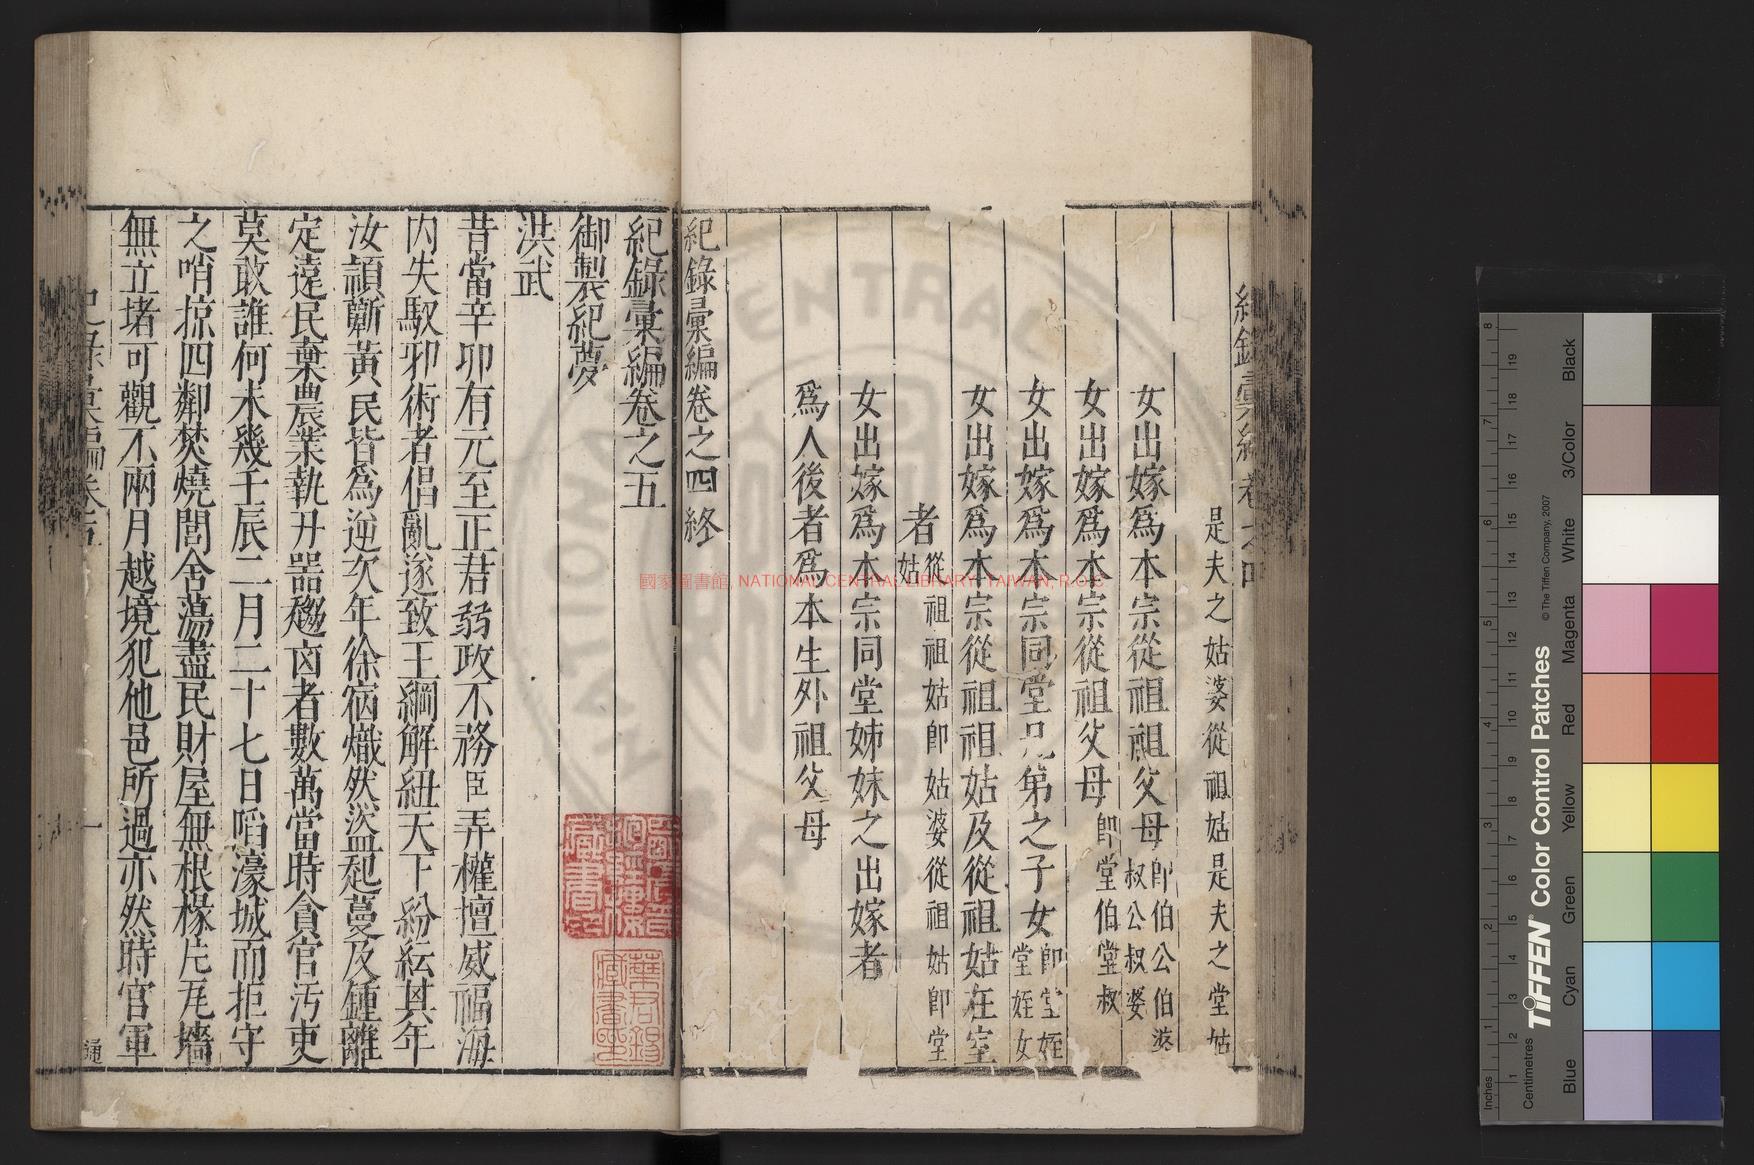 是夫之姑婆從祖姑是夫之堂姑
女出嫁為本宗從祖祖父母即伯公伯婆叔公叔婆
女出嫁為本宗從祖父母即堂伯堂叔
女出嫁為本宗同堂兄弟之子女即堂姪堂姪女
女出嫁為本宗從祖祖姑及從祖姑在室
者從祖祖姑即姑婆從祖姑即堂姑
女出嫁為本宗同堂姊妹之出嫁者
為人後者為本生外祖父母
紀錄彙編卷之四終
紀錄彙編卷之五
御製紀夢
洪武
昔當辛卯有元至正君弱政不務臣弄權擅威福海
内失馭邪術者倡亂遂致王綱解紐天下紛紜其年
汝潁蘄黃民皆為逆次年徐宿熾然盜起蔓及鍾離
定遠民棄農業執刃器趨凶者數萬當時貪官汚吏
莫敢誰何未幾壬辰二月二十七日陷濠城而拒守
之哨掠四鄰焚燒閭舍蕩盡民財屋無根椽片瓦墻
無立堵可觀不兩月越境犯他邑所過亦然時官軍
一
通
國家圖書館, NATIONAL CENTRAL LIBRARY, TAIWAN, R.O.C
TIFFEN Color Control Patches
© The Tiffen Company, 2007
Inches
Centimetres
Blue
Cyan
Green
Yellow
Red
Magenta
White
3/Color
Black